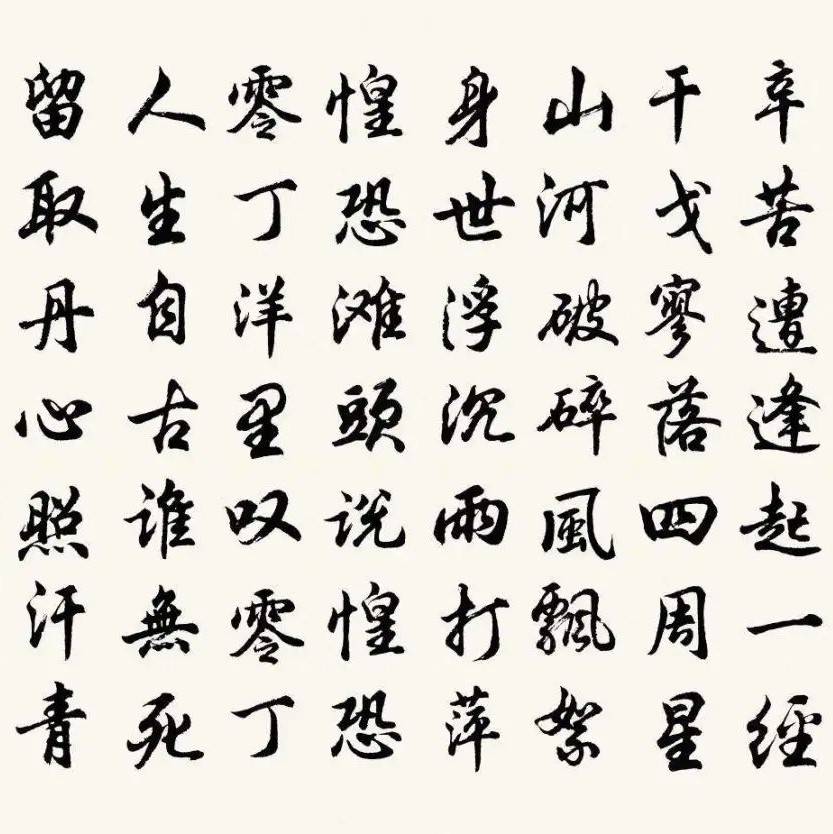 辛苦遭逢起一經
干戈寥落四周星
山河破碎風飄絮
身世浮沉雨打萍
惶恐滩頭說惶恐
零丁洋里叹零丁
人生自古誰無死
留取丹心照汗青